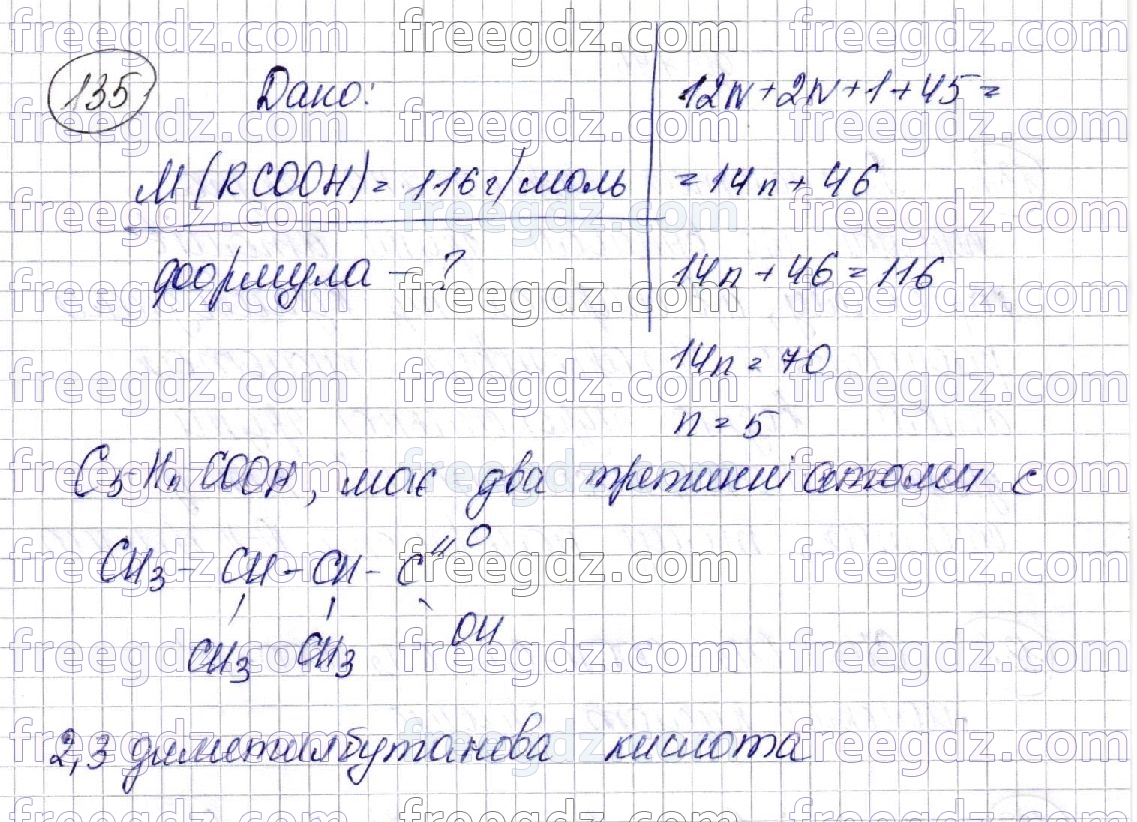 135
Дано:
M(RCOOH)=116 г/моль
формула - ?
12n+2n+1+45=
=14n+46
14n+46=116
14n=70
n=5
C5H11COOH, має два третинні атоми C
CH3-CH-CH-C=O
CH3 CH3 OH
2,3 диметилбутанова кислота
freegdz.com